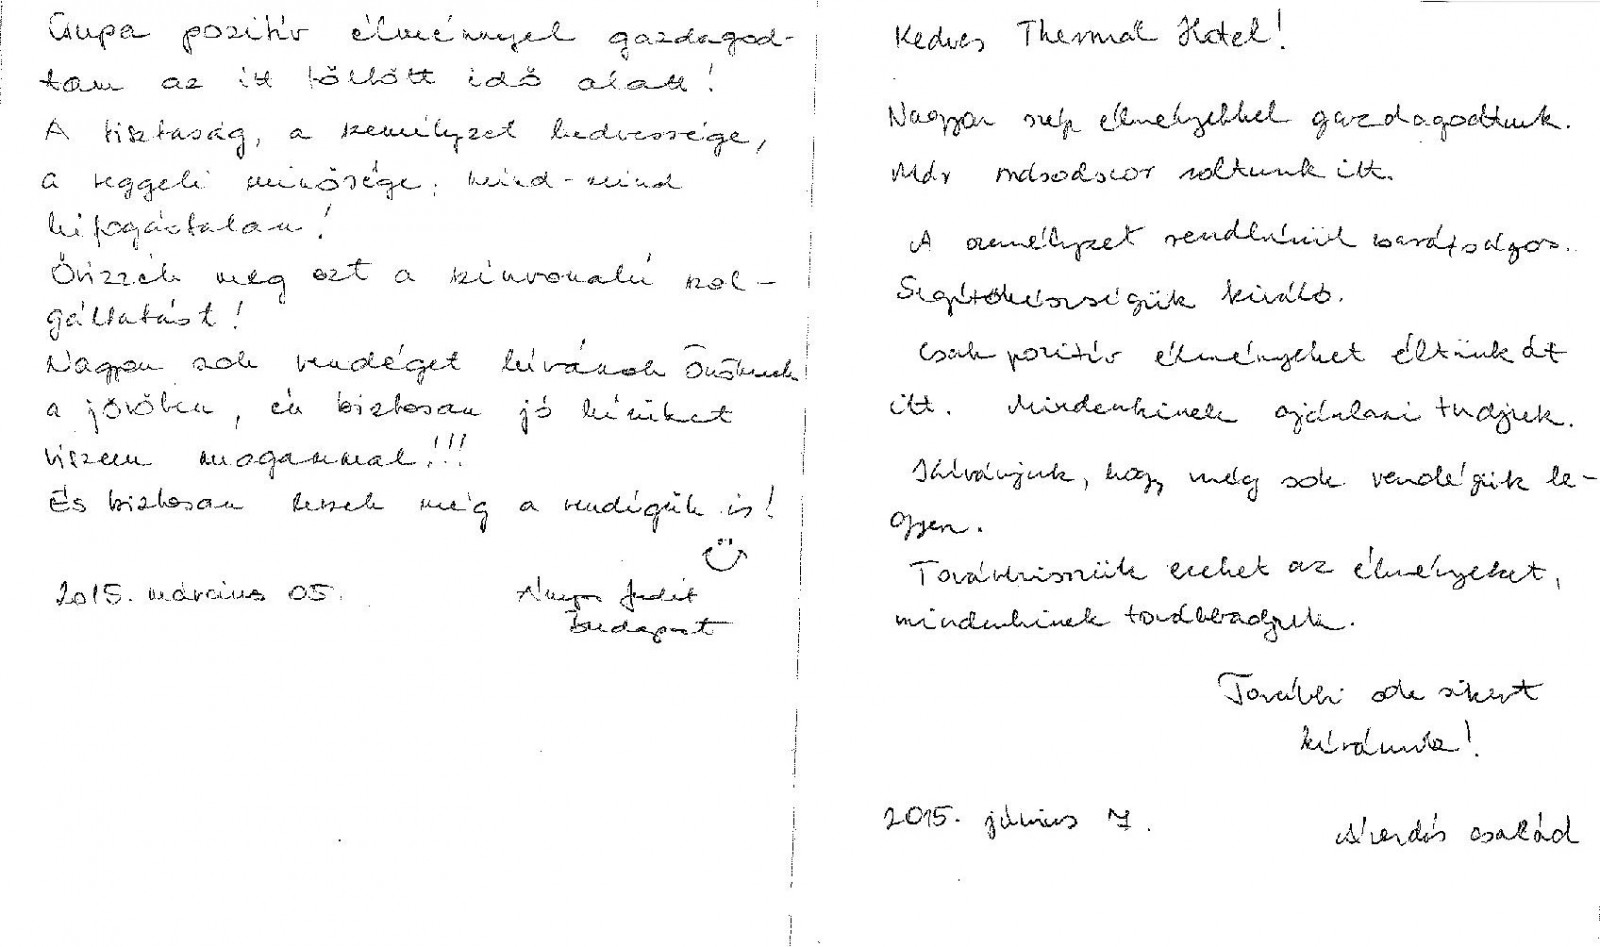 Csupa pozitív élménnyel gazdagod-
tam az itt töltött idő alatt!
A tisztaság, a személyzet kedvessége,
a reggeli minősége, mind-mind
kifogástalan!
Őrizzék meg ezt a színvonalú szol-
gáltatást!
Nagyon sok vendéget kívánok Önöknek
a jövőben, én biztosan jó híreket
viszem magammal!!!
És biztosan leszek még a vendégük is!
2015. március 05.
Judit
Budapest
Kedves Thermál Hotel!
Nagyon szép élményekkel gazdagodtunk.
Már másodszor voltunk itt.
A személyzet rendkívül barátságos.
Segítőkészségük kiváló.
Csak pozitív élményeket éltünk át
itt. Mindenkinek ajánlani tudjuk.
Kívánjuk, hogy még sok vendégük le-
gyen.
Továbbvisszük ezeket az élményeket,
mindenkinek továbbadjuk.
További sok sikert
kívánunk!
2015. június 7.
család